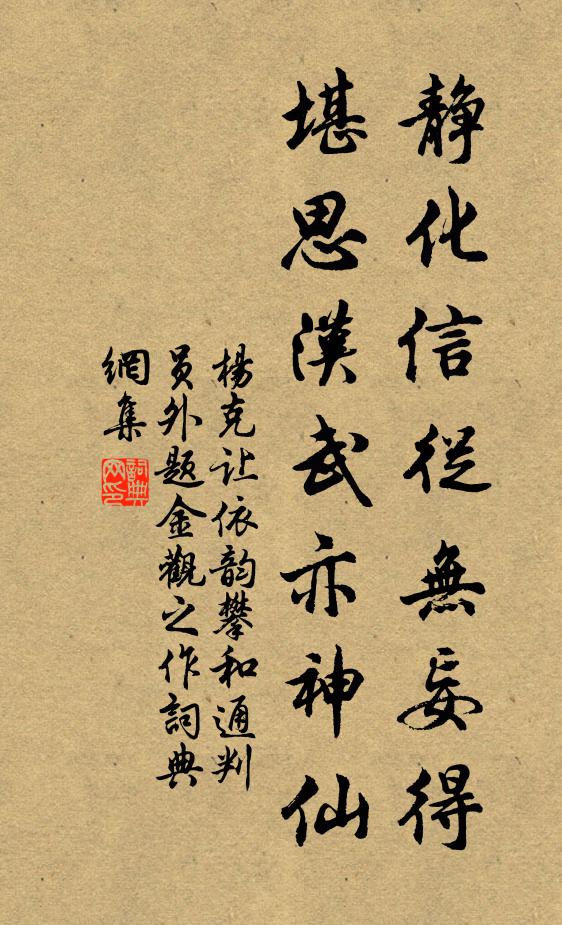 靜化信從無妄得
堪思漢武亦神仙
楊克让依韵攀和通判
员外题金觀之作詞典
網集
詞典網印